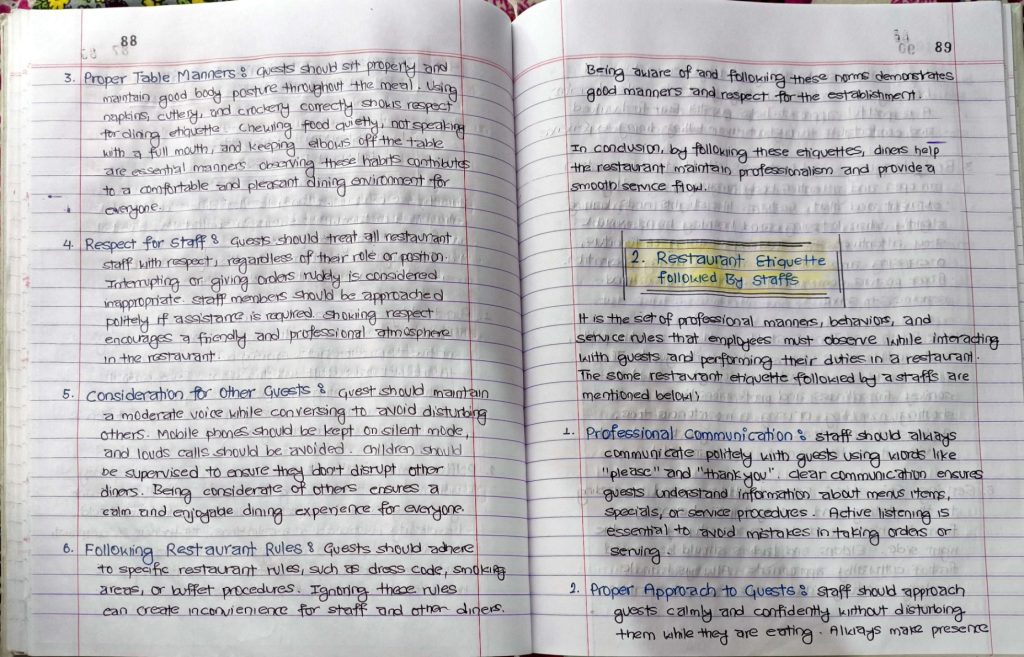 88
3. Proper Table Manners : Guests should sit properly and
maintain good body posture throughout the meal. Using
napkins, cutlery, and crockery correctly shows respect
for dining etiquette. Chewing food quietly, not speaking
with a full mouth, and keeping elbows off the table
are essential manners observing these habits contributes
to a comfortable and pleasant dining environment for
everyone.
4. Respect for Staff : Guests should treat all restaurant
staff with respect, regardless of their role or position.
Interrupting or giving orders rudely is considered
inappropriate. Staff members should be approached
politely if assistance is required. Showing respect
encourages a friendly and professional atmosphere
in the restaurant.
5. Consideration for Other Guests : Guest should maintain
a moderate voice while conversing to avoid disturbing
others. Mobile phones should be kept on silent mode,
and louds calls should be avoided. Children should
be supervised to ensure they don't disrupt other
diners. Being considerate of others ensures a
calm and enjoyable dining experience for everyone.
6. Following Restaurant Rules : Guests should adhere
to specific restaurant rules, such as dress code, smoking
areas, or buffet procedures. Ignoring these rules
can create inconvienience for staff and other diners.
89
Being aware of and following these norms demonstrates
good manners and respect for the establishment.
In conclusion, by following these etiquettes, diners help
the restaurant maintain professionalism and provide a
smooth service flow.
2. Restaurant Etiquette
followed By Staffs
It is the set of professional manners, behaviors, and
service rules that employees must observe while interacting
with guests and performing their duties in a restaurant.
The some restaurant etiquette followed by a staffs are
mentioned below;
1. Professional Communication : Staff should always
communicate politely with guests using words like
"please" and "thank you". Clear communication ensures
guests understand information about menus items,
specials, or service procedures. Active listening is
essential to avoid mistakes in taking orders or
serving.
2. Proper Approach to Guests : Staff should approach
guests calmly and confidently without disturbing
them while they are eating. Always make presence